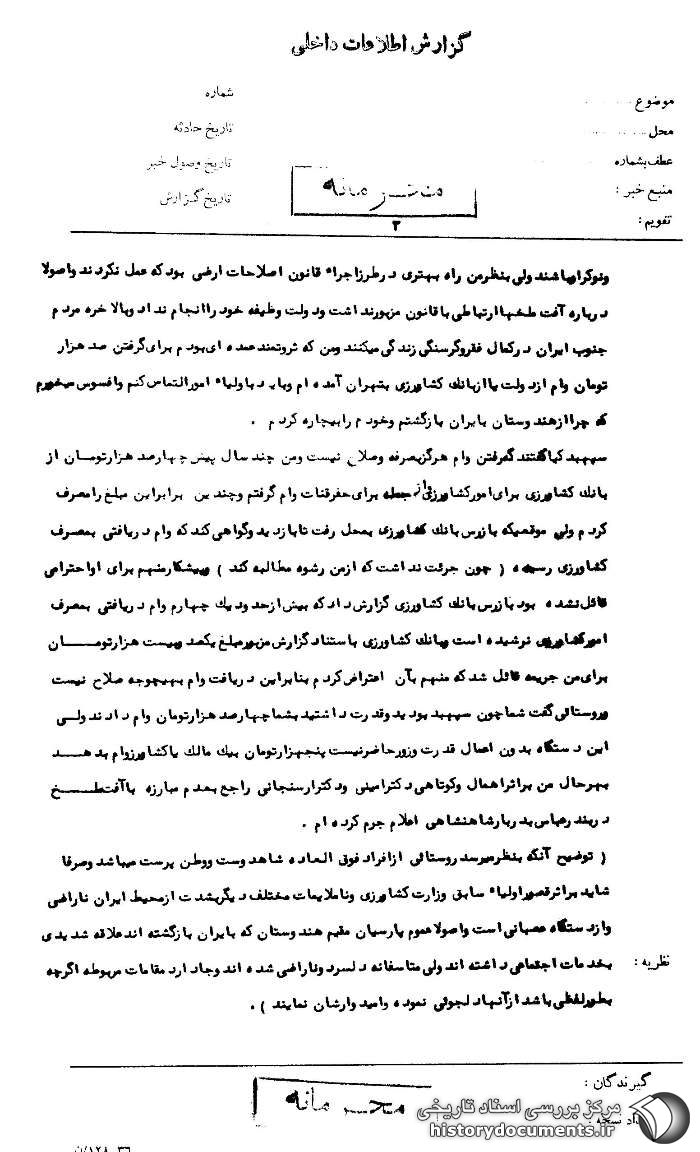 گزارش اطلاعات داخلی
موضوع
شماره
محل
تاریخ حادثه
عطف بشماره
تاریخ وصول خبر
منبع خبر :
تاریخ گزارش
تقویم :
محرمانه
۲
ونوکرامیباشند ولی بنظرمن راه بهتری درطرزاجراء قانون اصلاحات ارضی بود که عمل نکردند واصولا
درباره آفت ملخها ارتباطی با قانون مزبورنداشت ودولت وظیفه خود راانجام نداد وبالاخره مردم
جنوب ایران درکمال فقروگرسنگی زندگی میکنند ومن که ثروتمندعمده ای بودم برای گرفتن صد هزار
تومان وام ازدولت یاازبانك کشاورزی بتهران آمده ام وباید باولیاء امورالتماس کنم وافسوس میخورم
که چراازهندوستان بایران بازگشتم وخودم رابیچاره کردم .
سپهبد کیاگفتند گرفتن وام هرگزبصرفه وصلاح نیست ومن چند سال پیش چهارصد هزارتومـان از
بانك کشاورزی برای امورکشاورزی وازجمله برای حفرقنات وام گرفتم وچندین برابراین مبلغ رامصرف
کردم ولی موقعیکه بازرس بانك کشاورزی بمحل رفت تابازدید وگواهی کند که وام دریافتی بمصرف
کشاورزی رسیده ( چون جرئت نداشت که ازمن رشوه مطالبه کند ) وپیشکارمنهم برای اواحترامی
قائل نشده بود بازرس بانك کشاورزی گزارش داد که بیش ازحدود یك چهارم وام دریافتی بمصرف
امورکشاورزی نرسیده است وبانك کشاورزی باستناد گزارش مزبورمبلغ یکصد وبیست هزارتومـــان
برای من جریمه قائل شد که منهم بآن اعتراض کردم بنابراین دریافت وام بهیچوجه صلاح نیست
وروستائی گفت شماچون سپهبد بودید وقدرت داشتید بشماچهارصد هزارتومان وام دادند ولـی
این دستگاه بدون اعمال قدرت وزورحاضرنیست پنجهزارتومان بیك مالك یاکشاورزوام بدهــد
بهرحال من براثراهمال وکوتاهی دکترامینی ودکترارسنجانی راجع بعدم مبارزه باآفت ملــخ
دربندرعباس بدربارشاهنشاهی اعلام جرم کرده ام .
( توضیح آنکه بنظرمیرسد روستائی ازافراد فوق العاده شاهدوست ووطن پرست میباشد وصرفا
شاید براثرقصوراولیاء سابق وزارت کشاورزی وناملایمات مختلف دیگربشدت ازمحیط ایران ناراضی
وازدستگاه عصبانی است واصولاعموم پارسیان مقیم هندوستان که بایران بازگشته اندعلاقه شدیدی
نظریه : بخدمات اجتماعی داشته اند ولی متاسفانه دلسرد وناراضی شده اند وجادارد مقامات مربوطه اگرچه
بطورلفظی باشد ازآنهادلجوئی نموده وامیدوارشان نمایند ) .
گیرندگان :
محرمانه
داد نسخه :
مرکز بررسی اسناد تاریخی
historydocuments.ir
۱۲۸-۳۶/ن